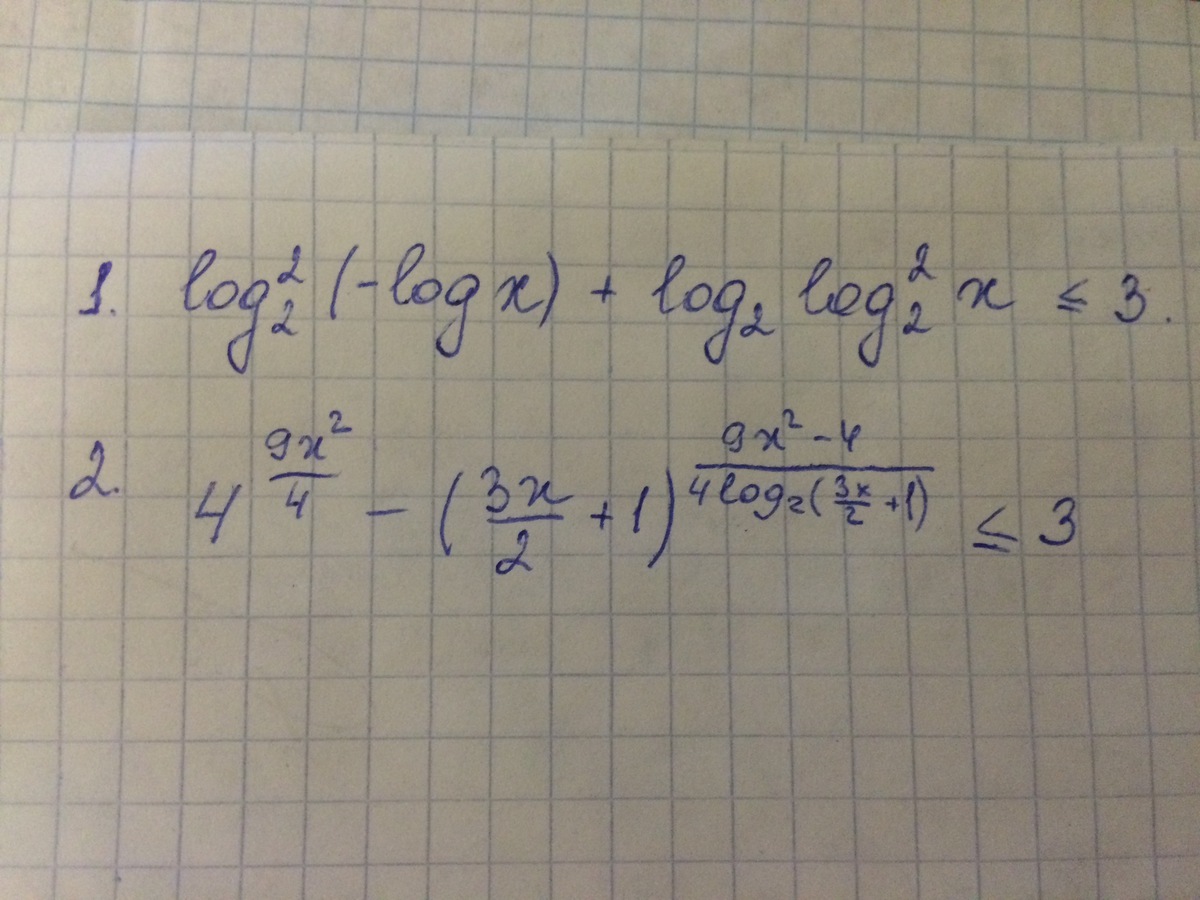 1. log₂² (-log x) + log₂ log₂² x ≤ 3.
2. 4^(9x²/4) - (3x/2 + 1)^((9x² - 4)/(4 log₂(3x/2 + 1))) ≤ 3